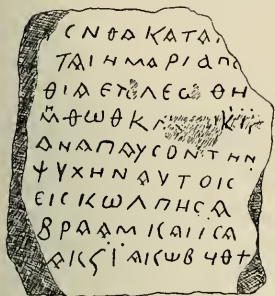 CΝΘΑΚΑΤΑΙ
ΤΑΙΗΜΑΡΙΑΠΟ
ΘΙΑΕΤΟΛΕΩΘΗ
ΜΘΩΘΚ
ΑΝΑΠΑΥCΟΝΤΗΝ
ΨΥΧΗΝΑΥΤΟΙC
ΕΙCΚΩΛΠΗCΑ
ΒΡΑΑΜΚΑΙΙCΑ
ΑΚϚΙΑΚΩΒϤΘ+